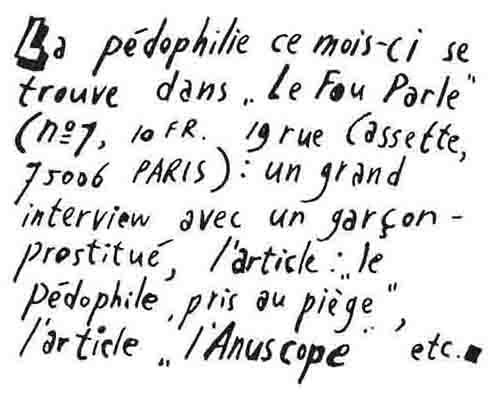 La pédophilie ce mois-ci se
trouve dans „Le Fou Parle"
(nº7, 10 FR. 19 rue Cassette,
75006 PARIS) : un grand
interview avec un garçon-
prostitué, l'article : „le
pédophile, pris au piège",
l'article „l'Anuscope" etc.